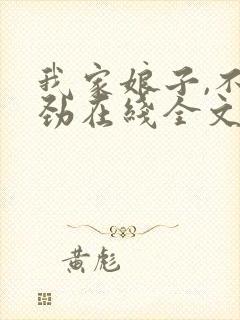 我家娘子,不
劲在线全文
黄彪